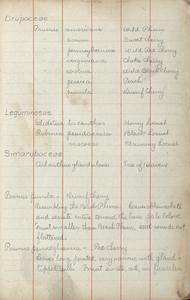 Drupaceae
Prunus americana Wild Plum
" avium Sweet Cherry
" pennsylvanica Wild Red Cherry
" virginiana Choke Cherry
" serotina Wild Black Cherry
" persica Peach
" pumila Dwarf Cherry
Leguminosae
Gleditsia triacanthos Honey Locust
Robinia pseudacacia Black Locust
" viscosa Clammy Locust
Simarubaceae
Ailanthus glandulosus Tree of Heaven
Prunus pumila = Dwarf Cherry
Resembling the Beach Plum. Leaves oblanceolate
and serrate entire toward the base, pale below
Fruit smaller than Beach Plum, seed ovoid not
flattened.
Prunus pennsylvanica - Red Cherry
Leaves long, pointed, very narrow, with gland-
tipped Fruit small, in